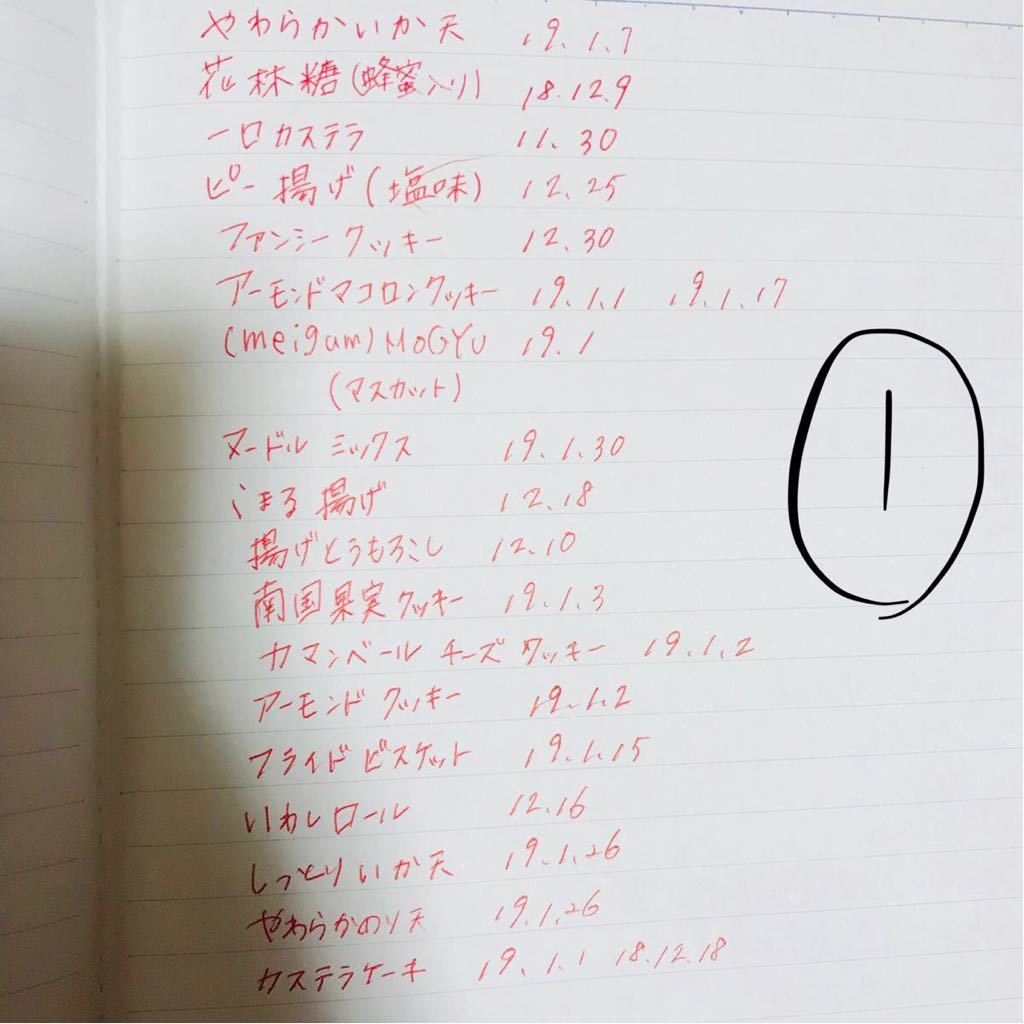 やわらかいか天 19.1.7
花林糖(蜂蜜入り) 18.12.9
一口カステラ 11.30
ピー揚げ(塩味) 12.25
ファンシークッキー 12.30
アーモンドマコロンクッキー 19.1.1 19.1.17
(meigum)MOGYU 19.1
(マスカット)
ヌードルミックス 19.1.30
こまる揚げ 12.18
揚げとうもろこし 12.10
南国果実クッキー 19.1.3
カマンベールチーズクッキー 19.1.2
アーモンドクッキー 19.1.2
フライドビスケット 19.1.15
いわしロール 12.16
しっとりいか天 19.1.26
やわらかのり天 19.1.26
カステラケーキ 19.1.1 18.12.18
1